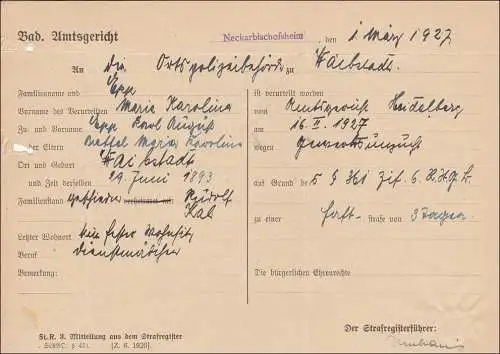 Bad. Amtsgericht Neckarbischofsheim , den 1 März 1927
An die Ortspolizeibehörde zu Waibstadt.
Familienname und Epp
Vorname des Verurteilten Maria Karolina
Zu- und Vorname Epp Karl August
der Eltern Maria Karolina
Ort und Geburt Waibstadt
und Zeit derselben 29. Juni 1893
Familienstand geschieden verheiratet mit Rudolf
Letzter Wohnort kein fester Wohnsitz
Beruf Dienstmädchen
Bemerkung:
ist verurteilt worden
von Amtsgericht Heidelberg
am 16. II. 1927
wegen Gewerbsunzucht
auf Grund des § 361 Zif. 6 R.St.G.B.
zu einer Haft - strafe von 3 Tagen
Die bürgerlichen Ehrenrechte
St.R. 3. Mitteilung aus dem Strafregister
[Z. 6. 1926].
Der Strafregisterführer: